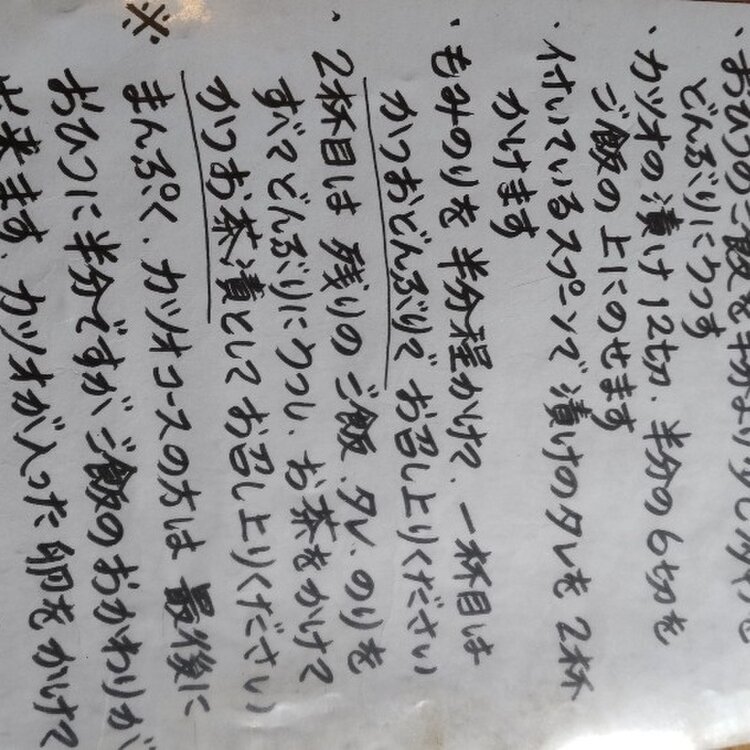 ・おひつのご飯を半分より少し
どんぶりにうつす
・カツオの漬け12切、半分の6切を
ご飯の上にのせます
・付いているスプーンで漬けのタレを2杯
かけます
・もみのりを半分程かけて、一杯目は
かつおどんぶりでお召し上りください
・2杯目は残りのご飯、タレ、のりを
すべてどんぶりにうつし、お茶をかけて
かつお茶漬としてお召し上りください
※まんぷく、カツオコースの方は最後に
おひつに半分ですがご飯のおかわりが
出来ます。カツオが入った卵をかけて